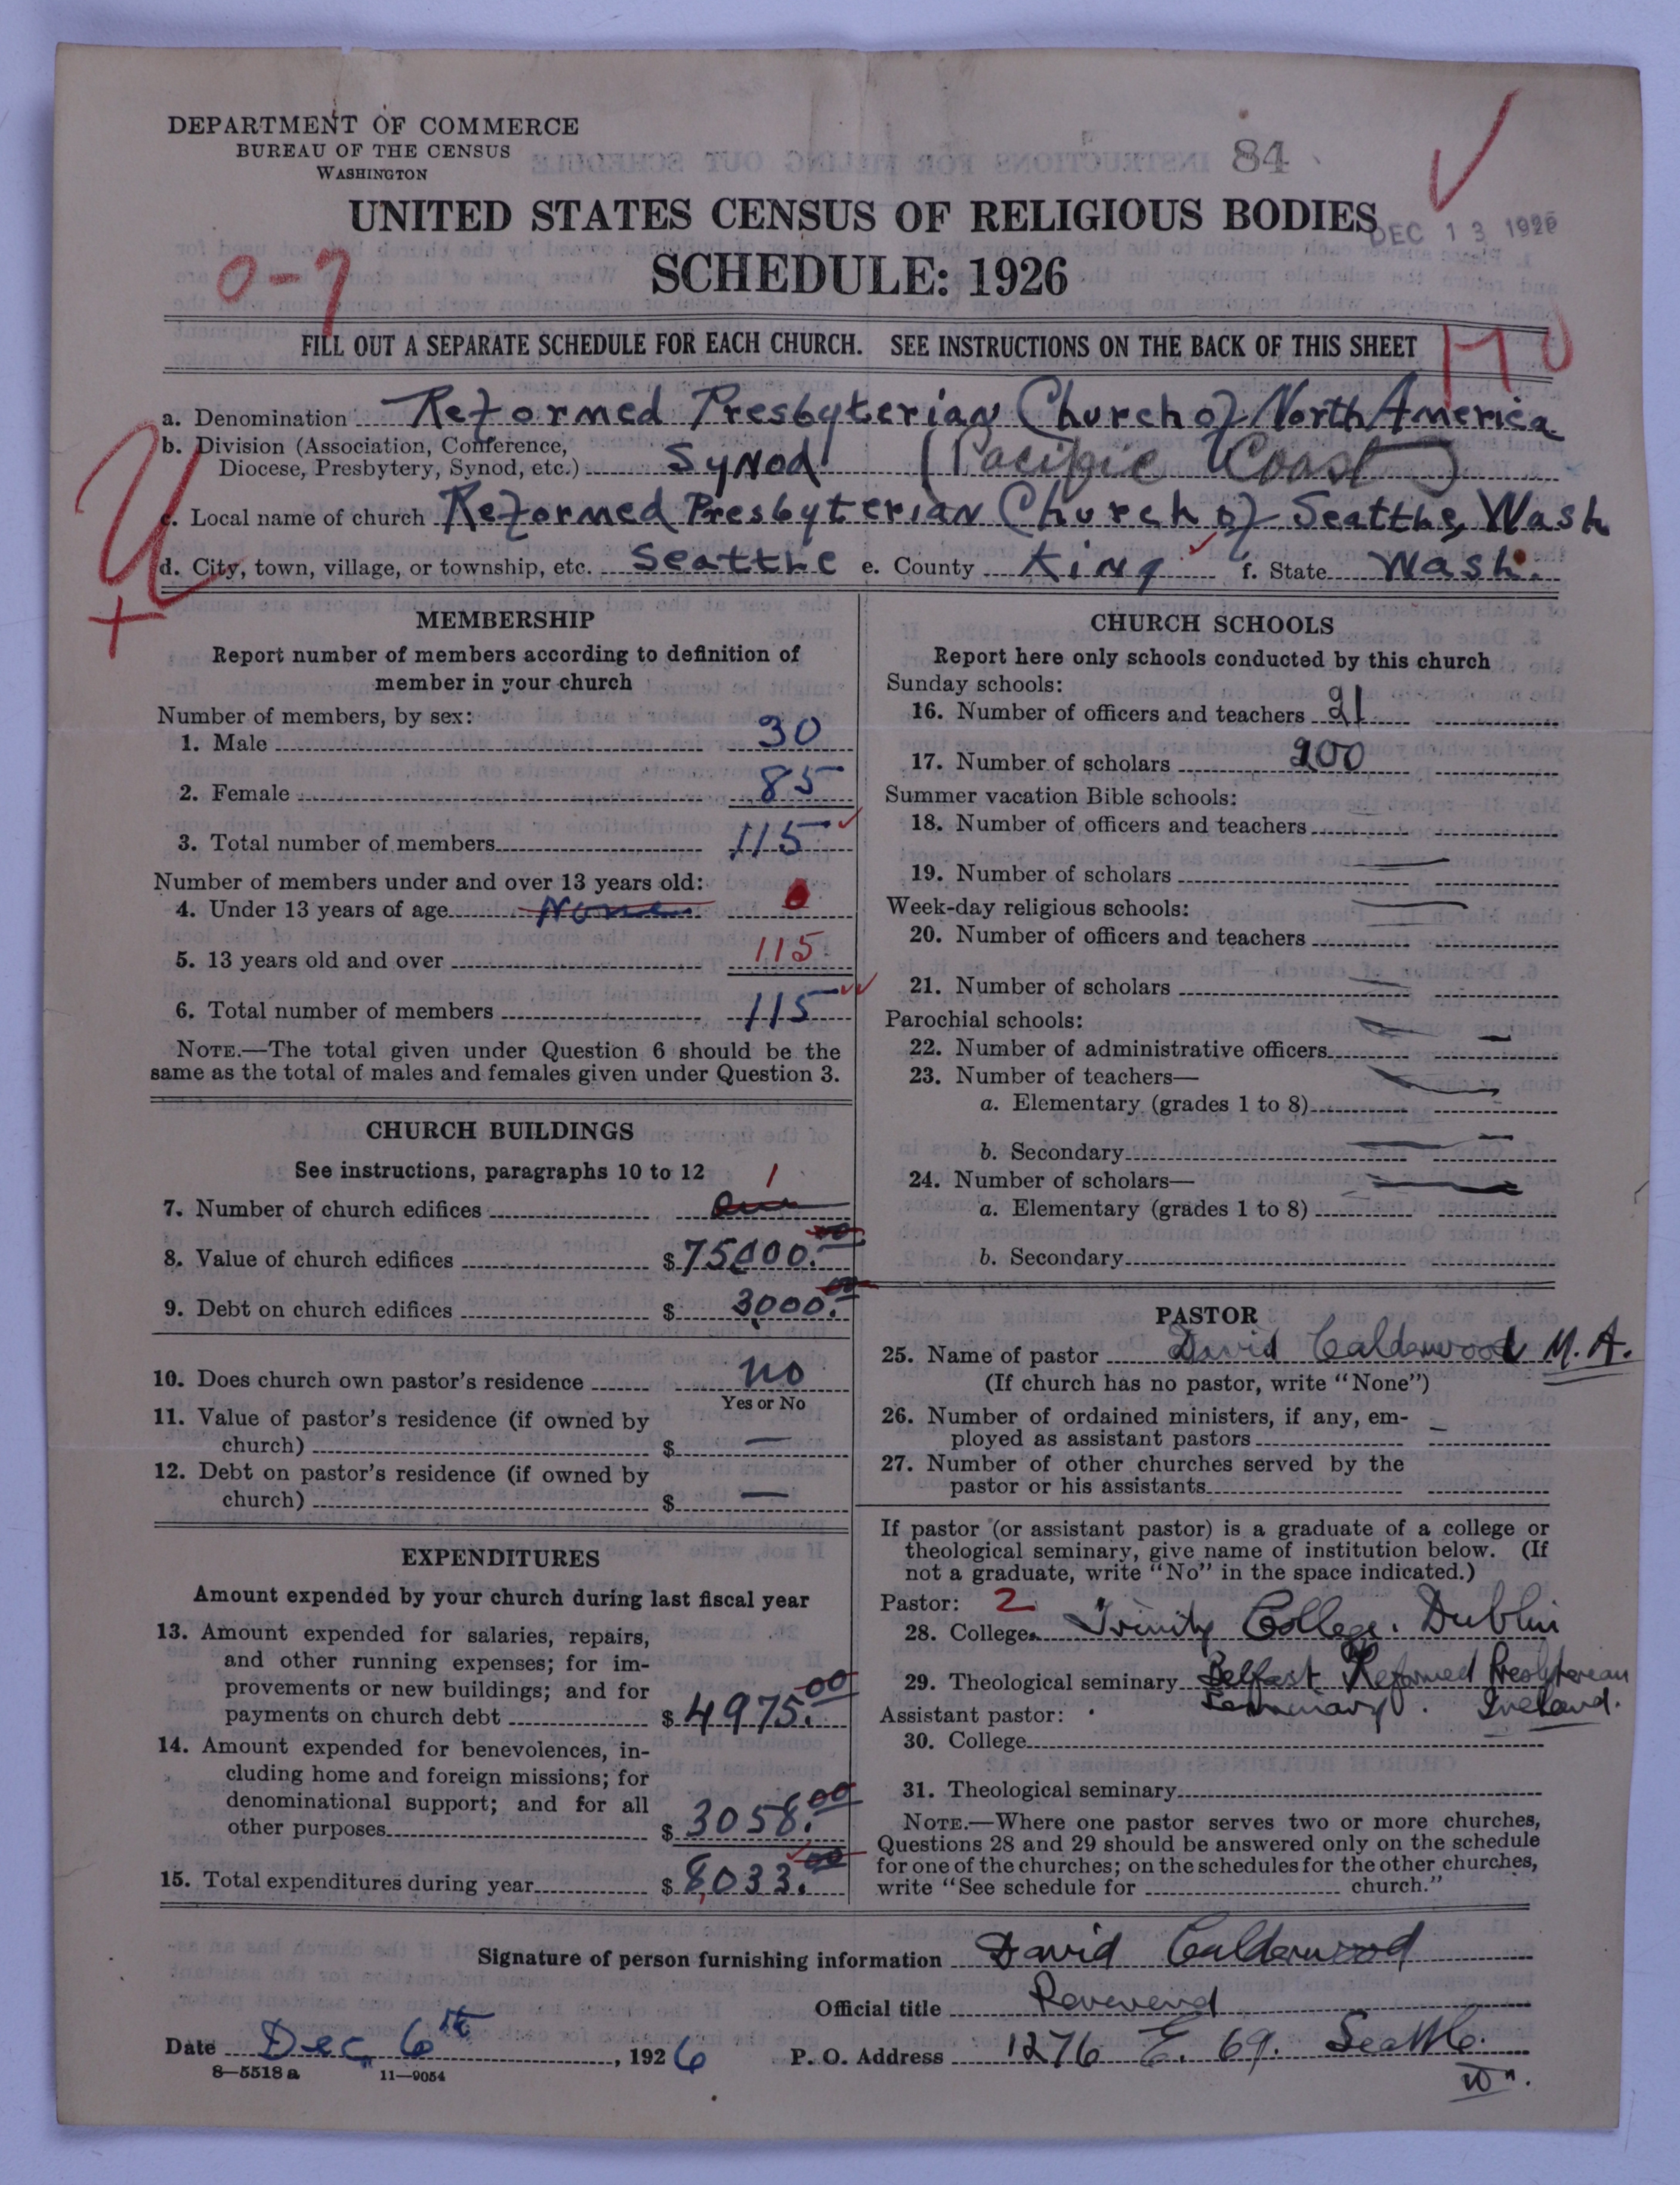 DEPARTMENT OF COMMERCE
BUREAU OF THE CENSUS
WASHINGTON
84
UNITED STATES CENSUS OF RELIGIOUS BODIES
DEC 13 1926
SCHEDULE: 1926
0-7
FILL OUT A SEPARATE SCHEDULE FOR EACH CHURCH. SEE INSTRUCTIONS ON THE BACK OF THIS SHEET
a. Denomination Reformed Presbyterian Church of North America
b. Division (Association, Conference,
Diocese, Presbytery, Synod, etc.) Synod (Pacific Coast)
c. Local name of church Reformed Presbyterian Church of Seattle, Wash
d. City, town, village, or township, etc. Seattle e. County King f. State Wash.
MEMBERSHIP
Report number of members according to definition of
member in your church
Number of members, by sex:
1. Male 30
2. Female 85
3. Total number of members 115
Number of members under and over 13 years old:
4. Under 13 years of age None 0
5. 13 years old and over 115
6. Total number of members 115
NOTE.—The total given under Question 6 should be the
same as the total of males and females given under Question 3.
CHURCH BUILDINGS
See instructions, paragraphs 10 to 12
7. Number of church edifices One 1
8. Value of church edifices $75000.00
9. Debt on church edifices $ 3000.00
10. Does church own pastor's residence No
Yes or No
11. Value of pastor's residence (if owned by
church) $ —
12. Debt on pastor's residence (if owned by
church) $ —
EXPENDITURES
Amount expended by your church during last fiscal year
13. Amount expended for salaries, repairs,
and other running expenses; for im-
provements or new buildings; and for
payments on church debt $ 4975.00
14. Amount expended for benevolences, in-
cluding home and foreign missions; for
denominational support; and for all
other purposes $ 3058.00
15. Total expenditures during year $ 8033.00
CHURCH SCHOOLS
Report here only schools conducted by this church
Sunday schools:
16. Number of officers and teachers 21
17. Number of scholars 200
Summer vacation Bible schools:
18. Number of officers and teachers
19. Number of scholars —
Week-day religious schools:
20. Number of officers and teachers —
21. Number of scholars —
Parochial schools:
22. Number of administrative officers —
23. Number of teachers—
a. Elementary (grades 1 to 8) —
b. Secondary —
24. Number of scholars—
a. Elementary (grades 1 to 8) —
b. Secondary
PASTOR
25. Name of pastor David Calderwood M.A.
(If church has no pastor, write "None")
26. Number of ordained ministers, if any, em-
ployed as assistant pastors —
27. Number of other churches served by the
pastor or his assistants
If pastor (or assistant pastor) is a graduate of a college or
theological seminary, give name of institution below. (If
not a graduate, write "No" in the space indicated.)
Pastor: 2
28. College Trinity College. Dublin
29. Theological seminary Belfast Reformed Presbyterean
Seminary. Ireland.
Assistant pastor:
30. College
31. Theological seminary
NOTE.—Where one pastor serves two or more churches,
Questions 28 and 29 should be answered only on the schedule
for one of the churches; on the schedules for the other churches,
write "See schedule for church."
Signature of person furnishing information David Calderwood
Official title Reverend
Date Dec. 6th, 1926 P. O. Address 1276 E. 69. Seattle.
Wn.
8—5518a 11—9054